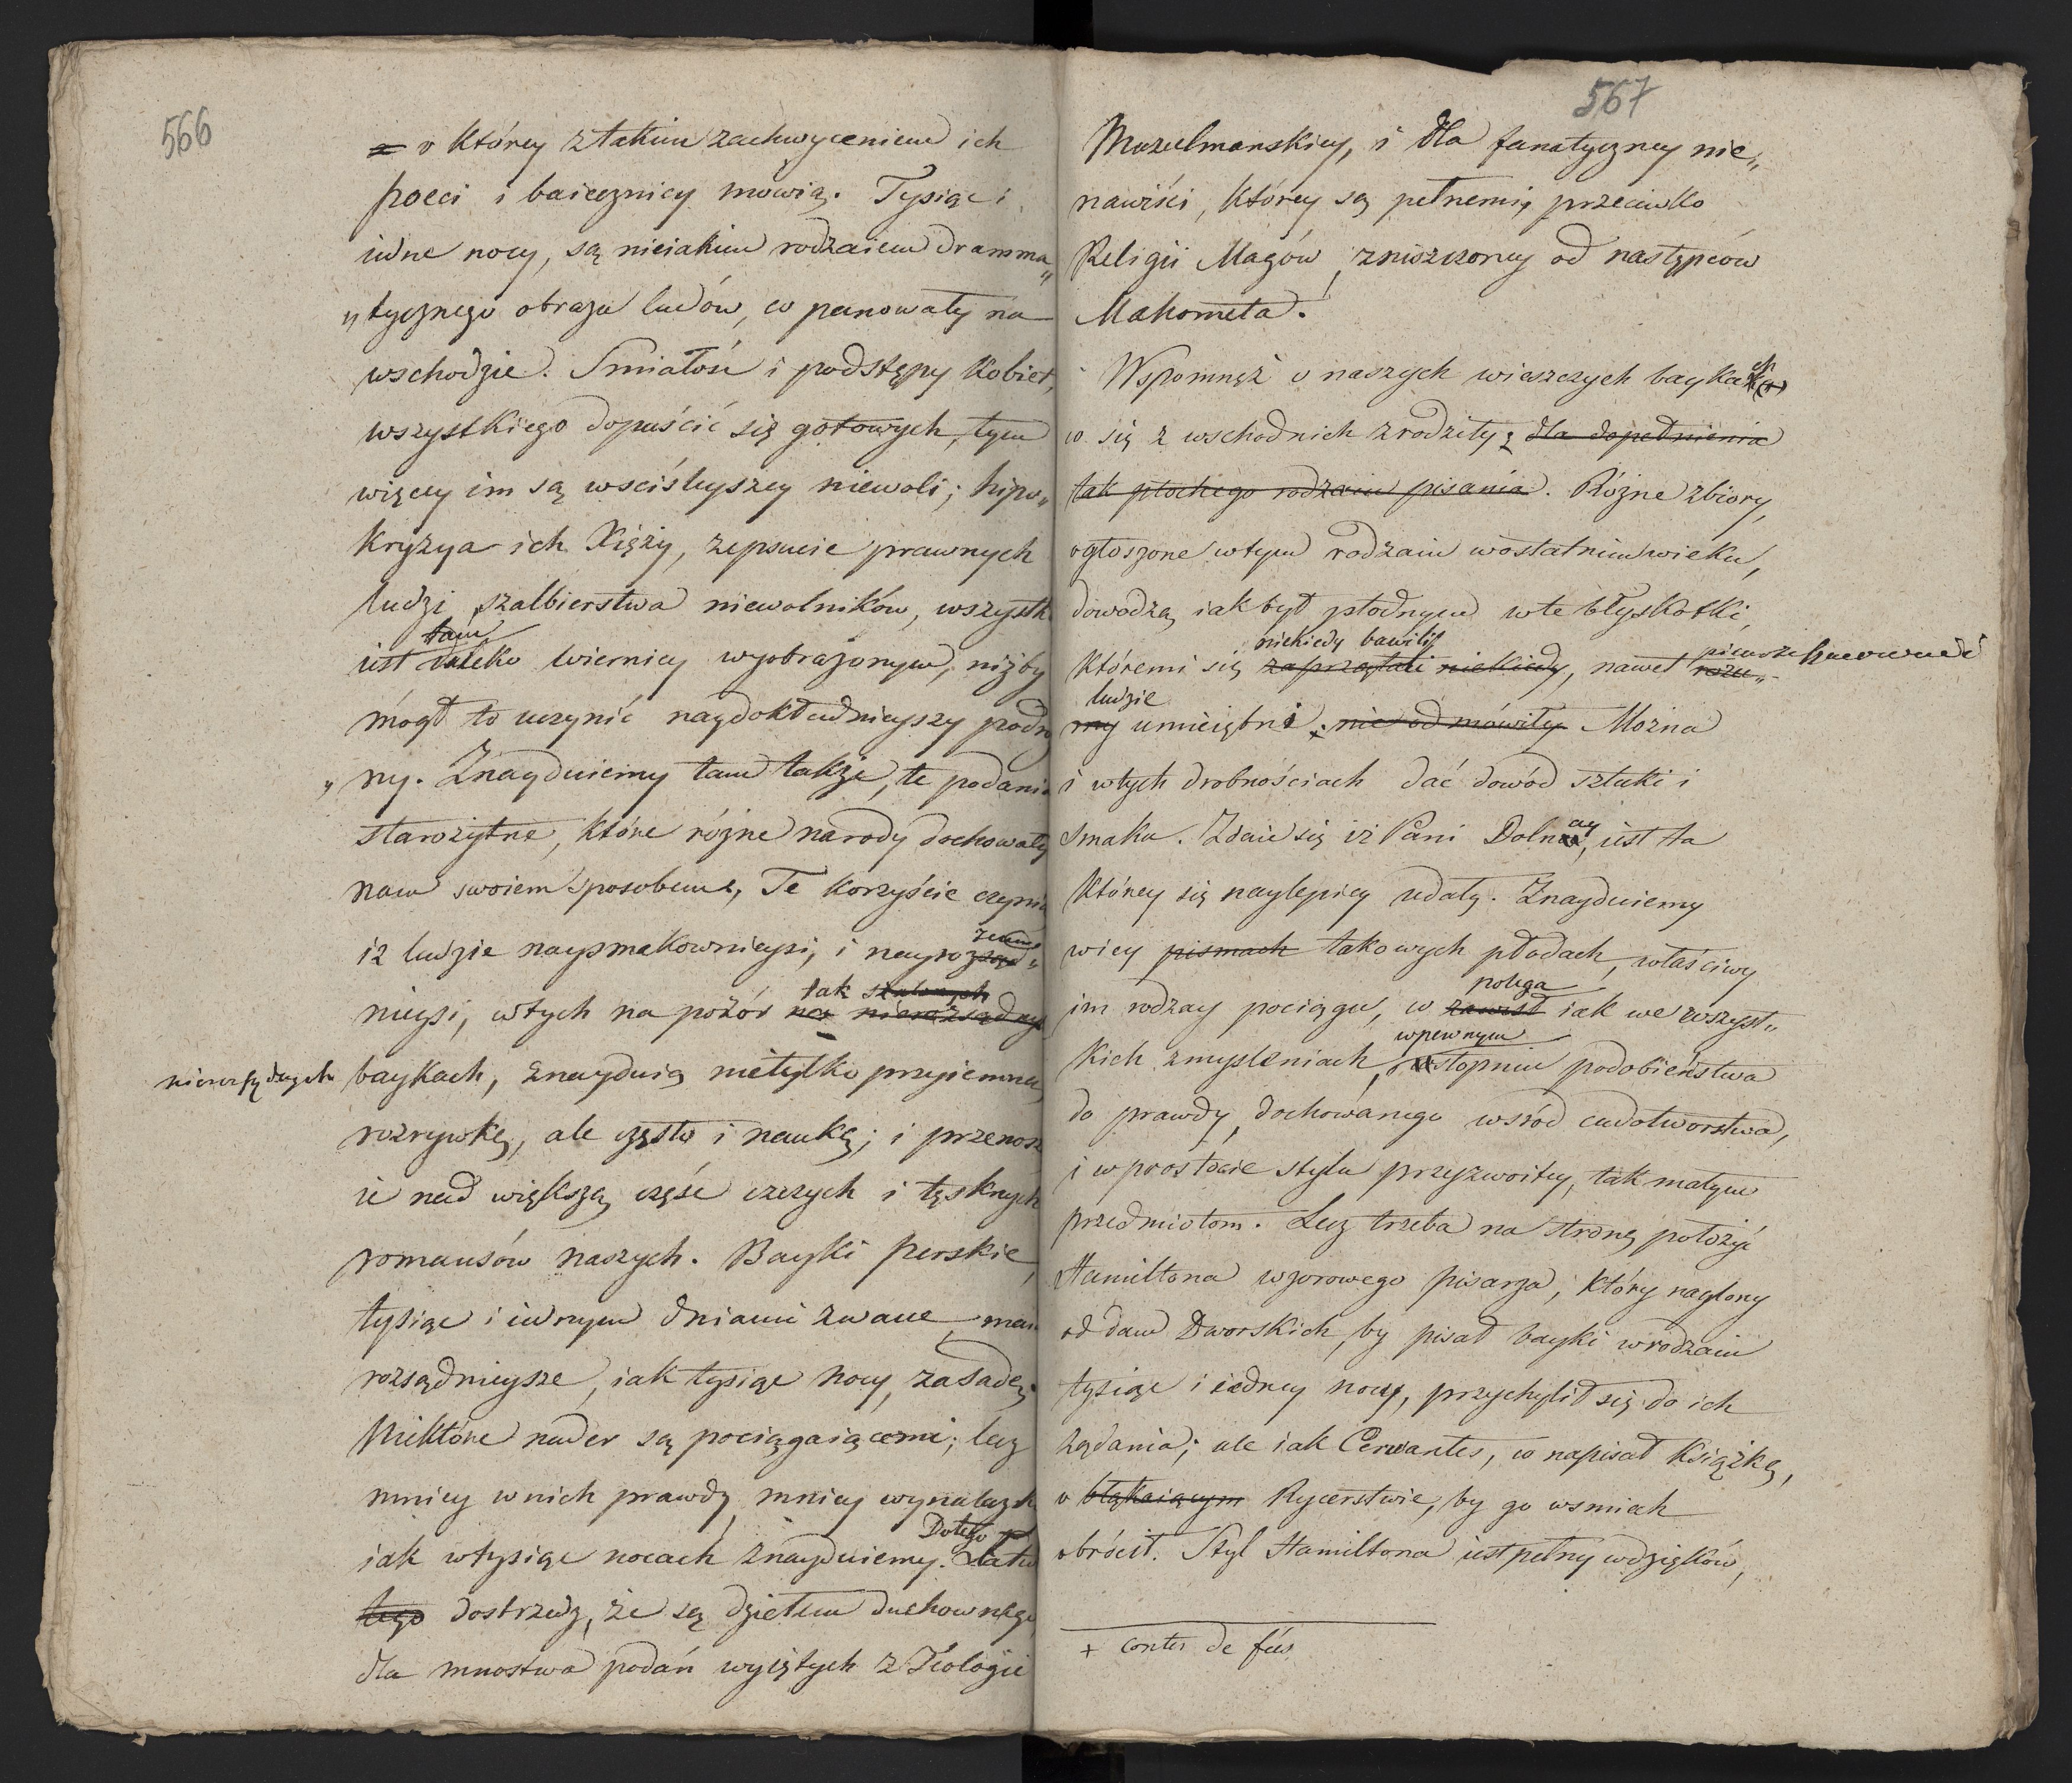 566
o którey z takim zachwyceniem ich
poeci i baiecznicy mowią. Tysiąc i
iedne nocy, są nieiakim rodzaiem dramma„
„tycznego obrazu ludów, co panowały na
wschodzie. Smiałość i podstępy Kobiet,
wszystkiego dopuścić się gotowych, tym
więcey im są wściśleyszey niewoli; hipo„
kryzya ich Xięży, zepsucie prawnych
ludzi, szalbierstwa niewolników, wszystk
tam
iest daleko wierniey wyobrażonym, niżby
mógł to uczynić naydokładnieyszy podró
„ny. Znayduiemy tam także, te podania
starożytne, które różne narody dochowały
nam swoiem sposobem. Te korzyście czynią
iż ludzie naysmakownieysi, i nayroz
nieysi, wtych na pozór tak
nierozsądnych baykach, znayduią nietylko przyiemną
rozrywkę, ale często i naukę; i przenosz
ie nad większą część czczych i tęsknych
romansów naszych. Bayki perskie,
tysiąc i iednym dniami zwane, maią
rozsądnieysze, iak tysiąc nocy, zasadę.
Niektóre nader są pociągaiącemi; lecz
mniey w nich prawdy, mniey wynalazk
iak wtysiąc nocach znayduiemy. Łatwo
Dotego
tego dostrzedz, że są dziełem duchownego
dla mnostwa podań wyiętych z Teologii
567
Muzulmanskiey, i dla fanatyczney nie„
nawiści, którey są pełnemi, przeciwko
Religii Magów, zniszczoney od następców
Mahometa.
Wspomnęż o naszych wieszczych baykach
co się z wschodnich zrodziły, dla dopełnienia
tak płochego rodzaiu pisania. Różne zbiory,
ogłoszone wtym rodzaiu wostatnim wieku,
dowodzą, iak był płodnym wte błyskotki,
niekiedy bawili
któremi się zaprzątali niekiedy, nawet rozu„
ludzie
my umieiętni + nie odmówiły. Można
i wtych drobnościach dać dowód sztuki i
smaku. Zdaie się iż Pani Dolnay, iest ta
którey się naylepiey udały. Znayduiemy
wiey pismach takowych płodach, właściwy
polega
im rodzay pociągu, co zawisł iak we wszyst„
wpewnym
kich zmysleniach, stopniu podobieństwa
do prawdy, dochowanego wsród cudotworstwa,
i wprostocie stylu przyzwoitey, tak małym
przedmiotom. Lecz trzeba na stronę położyć
Hamiltona wzorowego pisarza, który naglony
od dam Dworskich, by pisał bayki wrodzaiu
tysiąc i iedney nocy, przychylił się do ich
żądania; ale iak Cerwantes, co napisał Książkę,
o błąkaiącym Rycerstwie, by go wsmiah
obrócił. Styl Hamiltona iest pełny wdzięków,
+ contes de fées